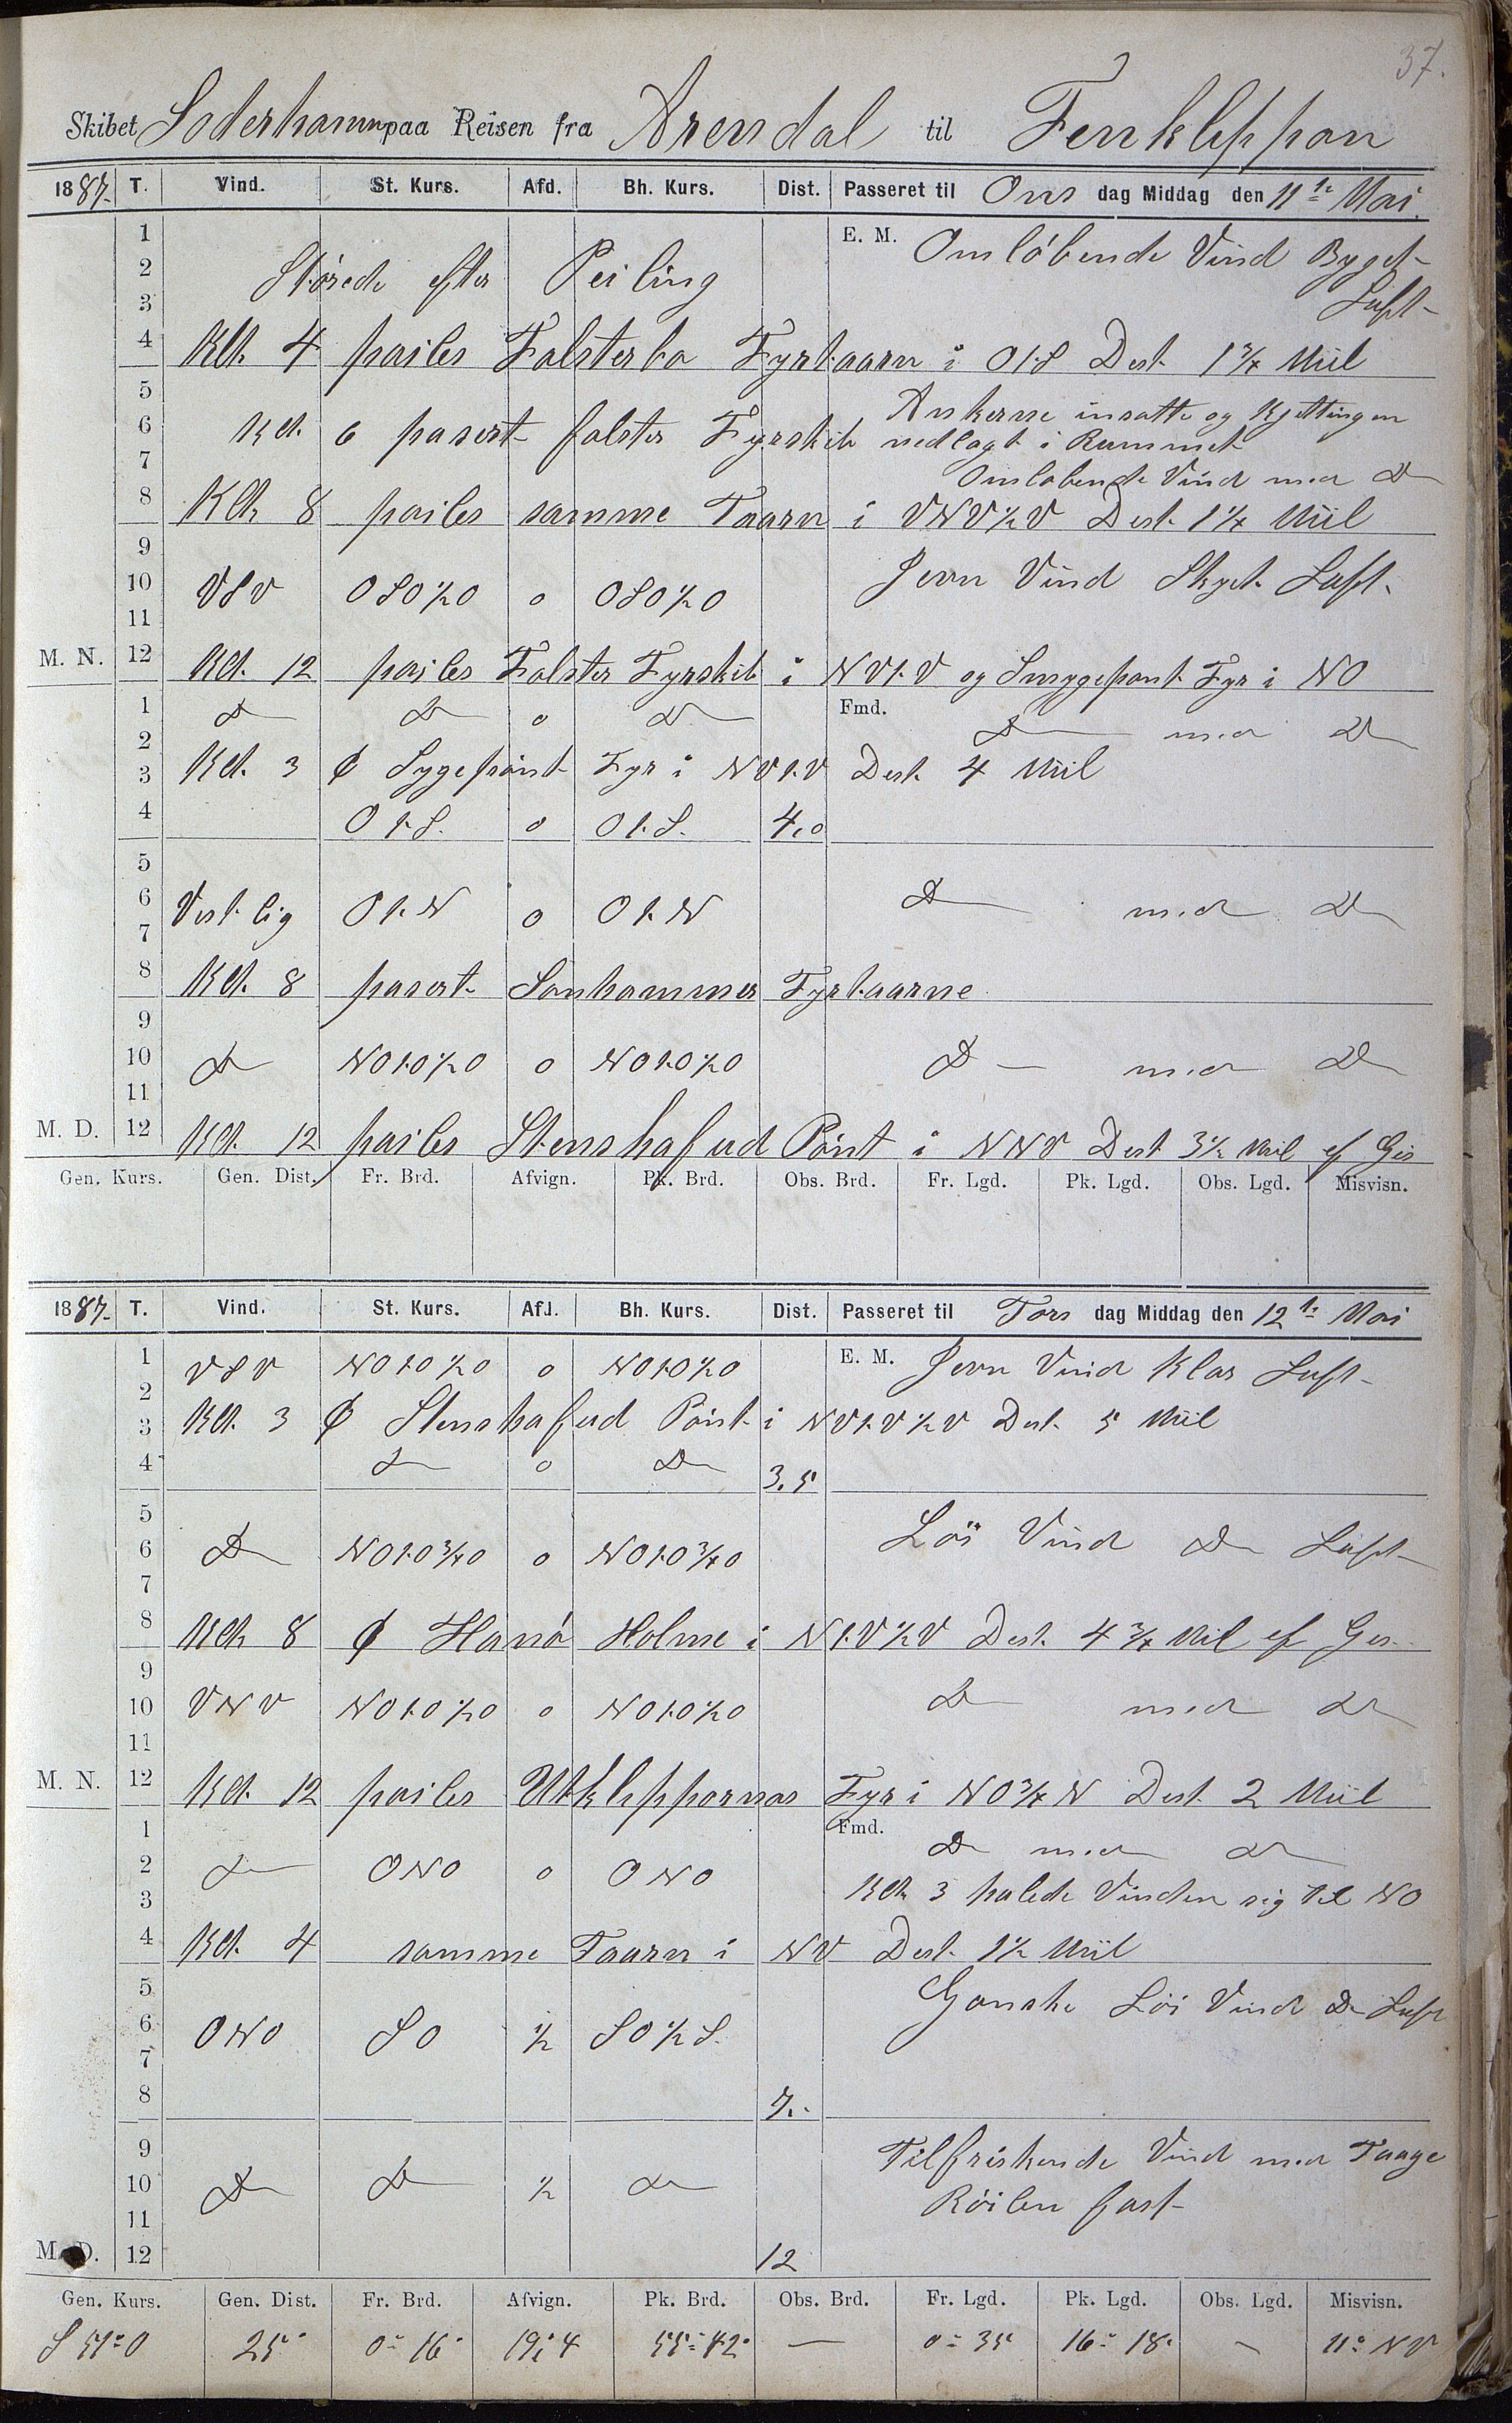 37.
Skibet Soderhamn paa Reisen fra Arendal til Fenkleppan
1887. T. Vind. St. Kurs. Afd. Bh. Kurs. Dist. Passeret til Ons dag Middag den 11te Mai.
1 E. M. Omlöbende Vind Byget
2 Störede efter Peiling
3 Luft
4 Klk. 4 peiles Falsterbo Fyrtaarn i OtS Dest. 1 3/4 Miil
5 Ankerne insatte og Kjettingen
6 Kl. 6 pasert falster Fyrskib nedlagt i Rummet
7 Omlobende Vind med Do
8 Klk 8 peiles samme Taarn i VNV½V Dest. 1 1/4 Miil
9 Jevn Vind Skyet Luft.
10 VSV OSO½O o OSO½O
11
M. N. 12 Kl. 12 peiles Falster Fyrskib i NVtV og Smygepont Fyr i NO
1 Do Do o Do Fmd. Do med Do
2
3 Kl. 3 Φ Sygepönt Fyr i NVtV Dest. 4 Miil
4 OtS. o OtS. 4,0
5
6 Vestlig OtN o OtN Do med Do
7
8 Kl. 8 pasert Sanhammer Fyrtaarne
9
10 Do NOtO½O o NOtO½O Do med Do
11
M. D. 12 Kl. 12 peiles Stenshafud Pönt i NNV Dest 3½ Miil ef Gis
Gen. Kurs. Gen. Dist. Fr. Brd. Afvign. Pk. Brd. Obs. Brd. Fr. Lgd. Pk. Lgd. Obs. Lgd. Misvisn.
1887. T. Vind. St. Kurs. Afd. Bh. Kurs. Dist. Passeret til Tors dag Middag den 12te Mai
1 VSV NOtO½O o NOtO½O E. M. Jevn Vind Klar Luft
2
3 Kl. 3 Φ Stenshafud Pönt i NVtV½V Dest. 5 Miil
4 Do o Do 3.5
5 Löi Vind Do Luft
6 Do NOtO3/4O o NOtO3/4O
7
8 Klk 8 Φ Hanö Holme i NtV½V Dest. 4 3/4 Mil ef Gis
9
10 VNV NOtO½O o NOtO½O Do med Do
11
M. N. 12 Kl. 12 peiles Utklepparnas Fyr i NO3/4N Dest. 2 Miil
1 Fmd. Do med Do
2 Do ONO o ONO
3 Klk 3 halede Vinden sig til NO
4 Kl. 4 samme Taarn i NV Dest. 1½ Miil
5 Ganske Löi Vind Do Luft
6 ONO SO ½ SO½S.
7
8 7.
9 Tilfriskende Vind med Taage
10 Do Do ½ Do
11 Röilen fast
M. D. 12 12
Gen. Kurs. Gen. Dist. Fr. Brd. Afvign. Pk. Brd. Obs. Brd. Fr. Lgd. Pk. Lgd. Obs. Lgd. Misvisn.
S 51° O 25' 0° 16' 19,4 55° 42' — 0° 35 16° 18' — 11° NV